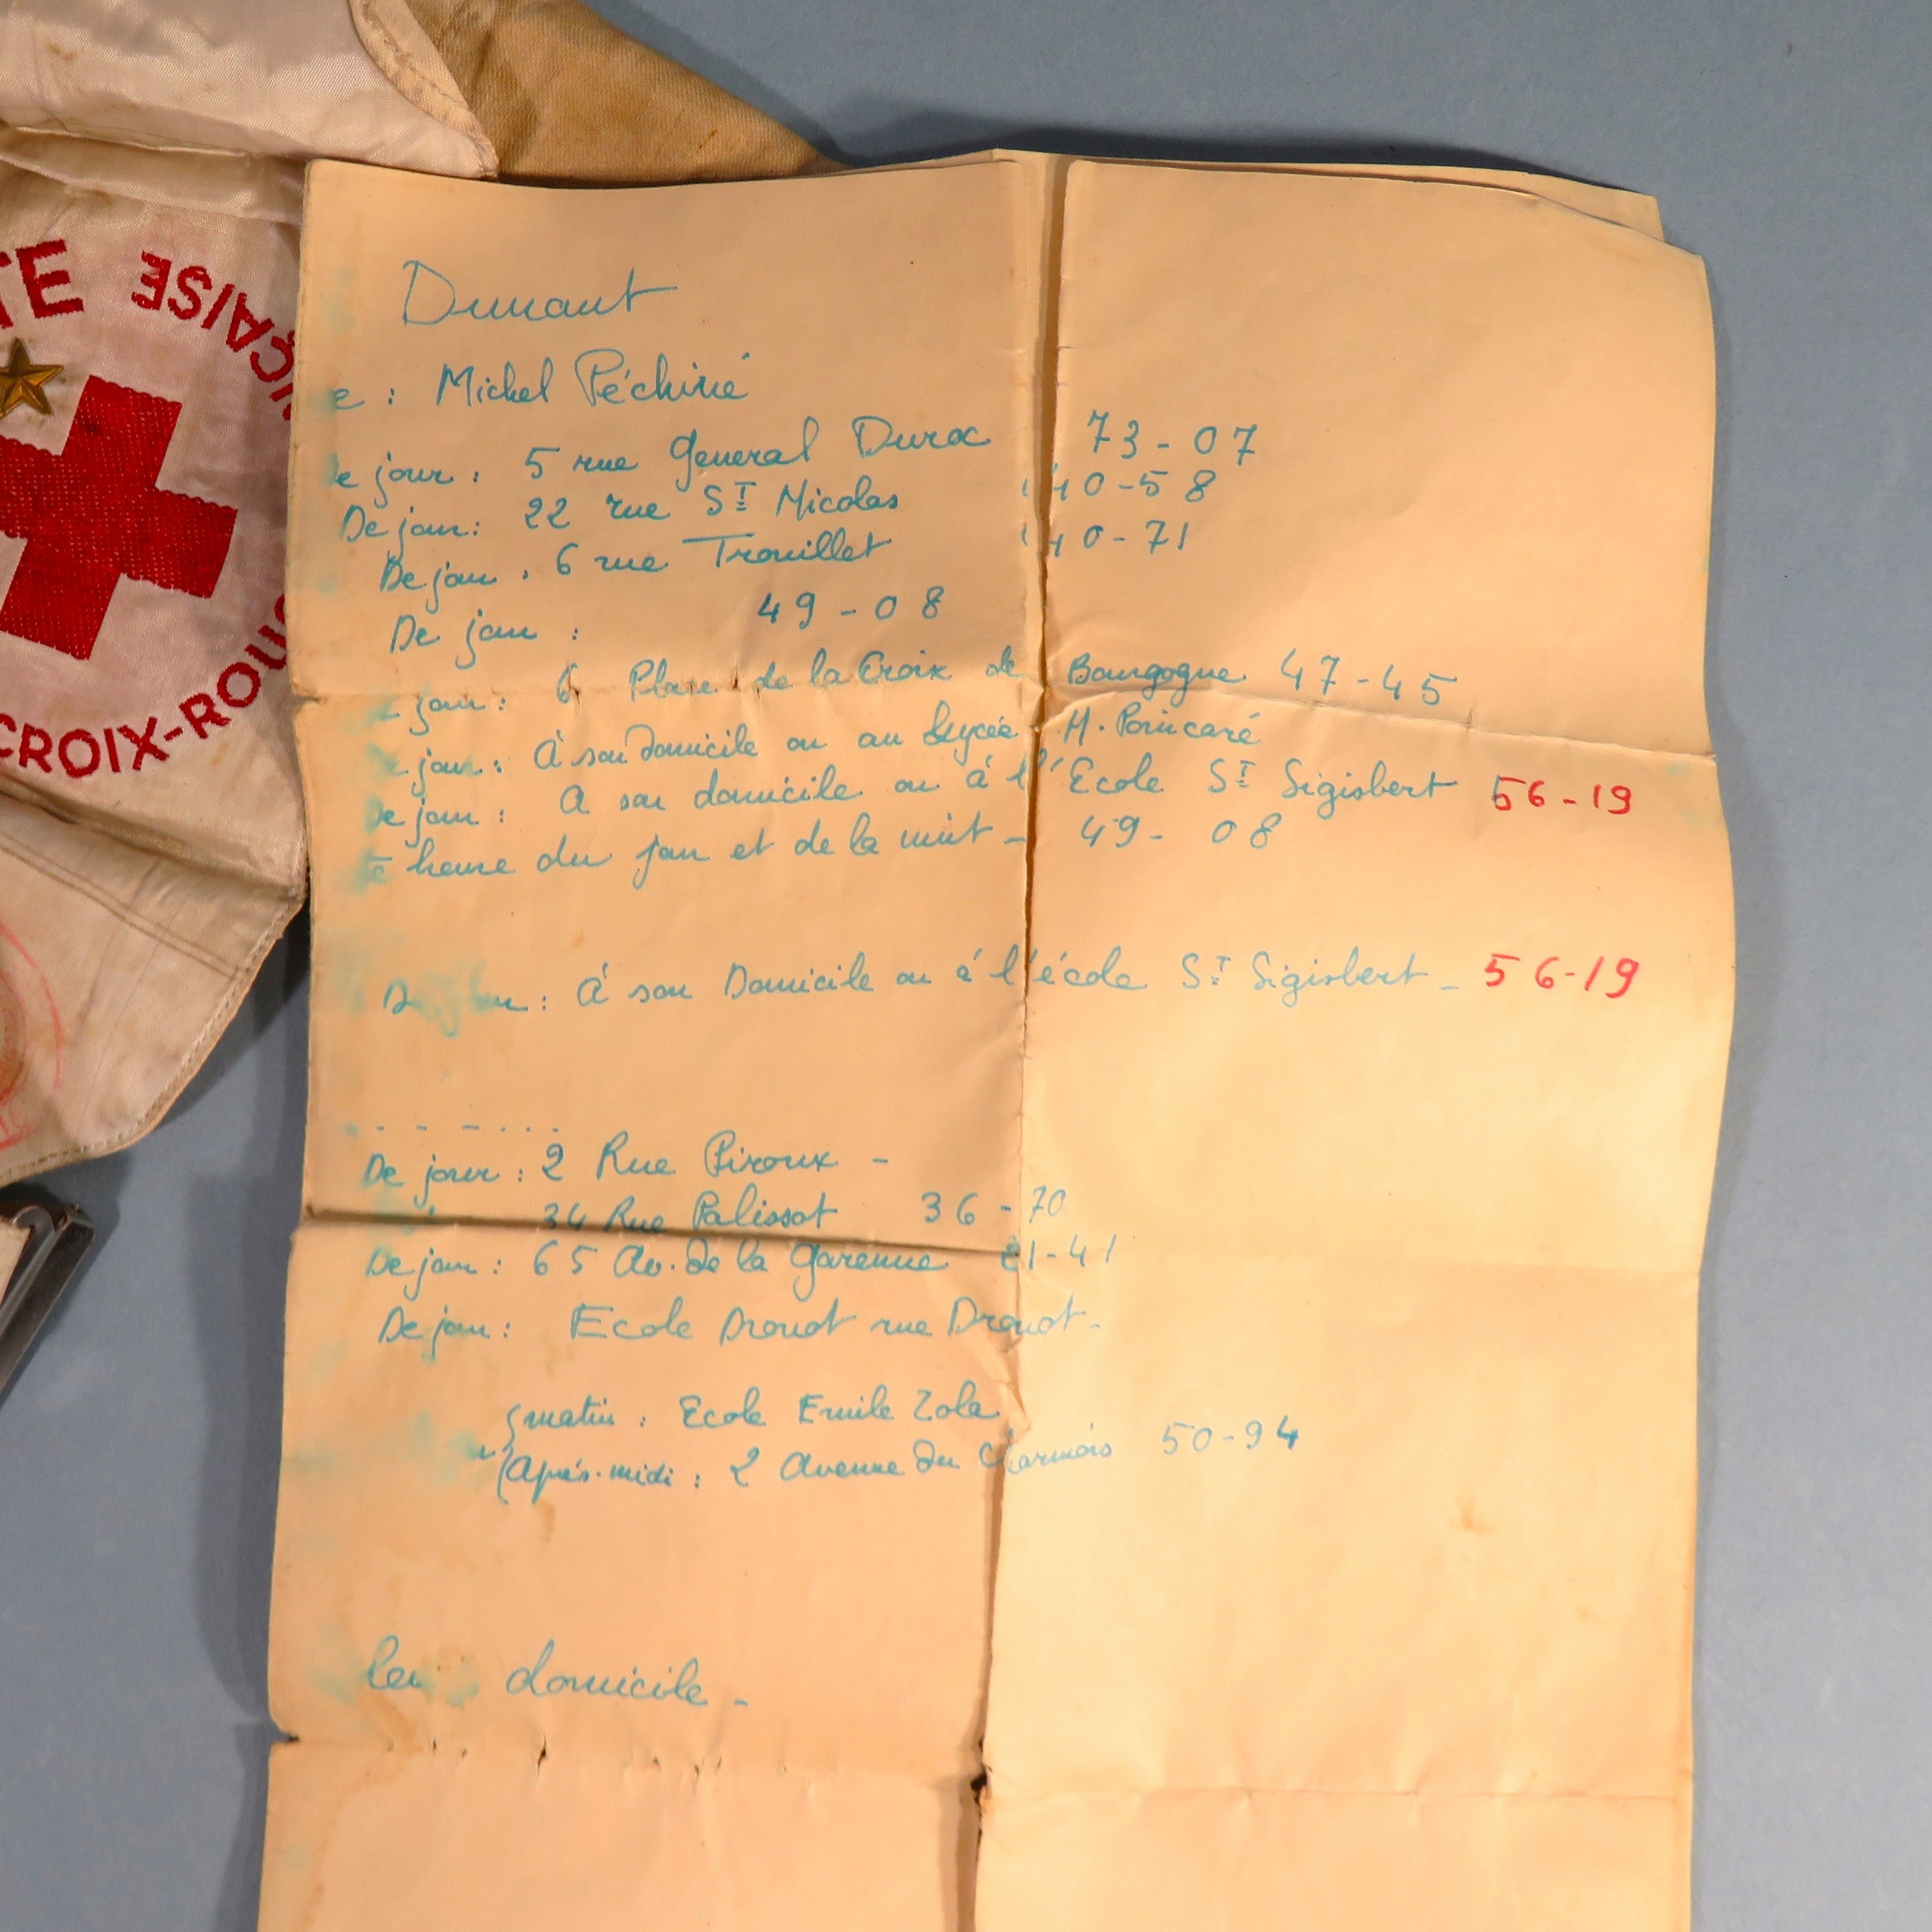 TE
ÇAISE
CROIX-ROU
Dunant
e : Michel Péchiné
e jour : 5 rue General Duroc 73-07
De jour : 22 rue St Nicolas 40-58
De jour : 6 rue Trouillet 40-71
De jour : 49-08
jour : 6 Place de la Croix de Bourgogne 47-45
jour : À son domicile ou au Lycée H. Poincaré
De jour : A son domicile ou à l'Ecole St Sigisbert 56-19
heure du jour et de la nuit - 49-08
De jour : À son Domicile ou à l'école St Sigisbert - 56-19
De jour : 2 Rue Piroux -
34 Rue Palissot 36-70
De jour : 65 Av. de la Garenne 81-41
De jour : Ecole Drouot rue Drouot -
matin : Ecole Emile Zola
Après-midi : 2 Avenue du Charmois 50-94
domicile -